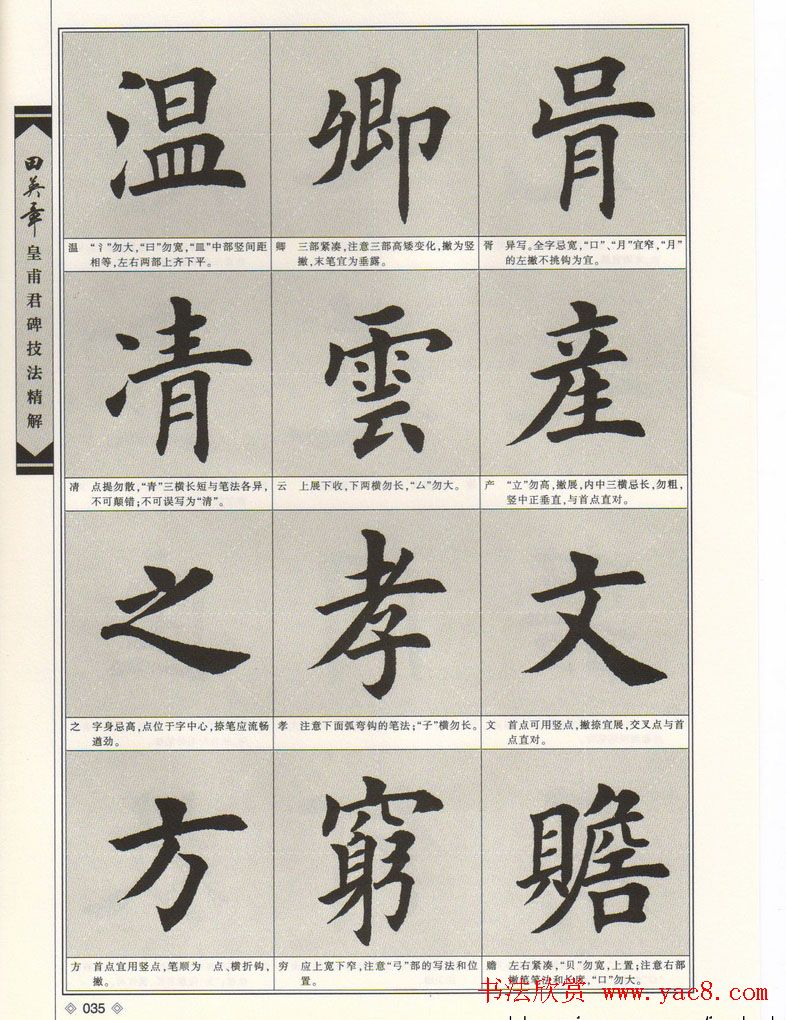 田英章
皇甫君碑技法精解
温 卿 胥
温 “氵”勿大，“曰”勿宽，“皿”中部竖间距
相等，左右两部上齐下平。
卿 三部紧凑，注意三部高矮变化，撇为竖
撇，末笔宜为垂露。
胥 异写。全字忌宽，“口”、“月”宜窄，“月”
的左撇不挑钩为宜。
凊 雲 産
凊 点提勿散，“青”三横长短与笔法各异，
不可颠错；不可误写为“清”。
云 上展下收，下两横勿长，“厶”勿大。
产 “立”勿高，撇展，内中三横忌长，勿粗，
竖中正垂直，与首点直对。
之 孝 文
之 字身忌高，点位于字中心，捺笔应流畅
遒劲。
孝 注意下面弧弯钩的笔法；“子”横勿长。
文 首点可用竖点，撇捺宜展，交叉点与首
点直对。
方 窮 贍
方 首点宜用竖点，笔顺为 点、横折钩，
撇。
穷 应上宽下窄，注意“弓”部的写法和位
置。
赡 左右紧凑，“贝”勿宽，上置；注意右部
撇笔笔法和长度，“口”勿大。
035
书法欣赏 www.yac8.com